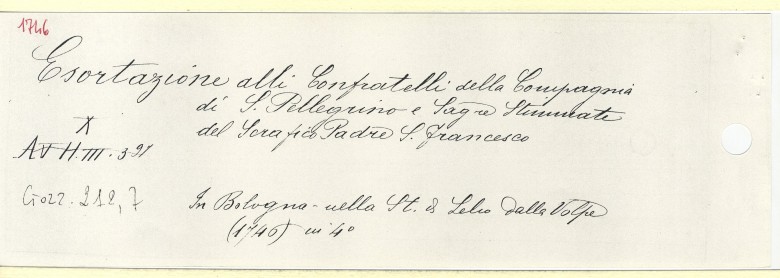 1746
Esortazione alli Confratelli della Compagnia
di S. Pellegrino e Sagre Stimmate
del Serafico Padre S. Francesco
X
AV H.III. 391
Gozz. 212,7
In Bologna nella St. di Lelio dalla Volpe
(1746) in 4º